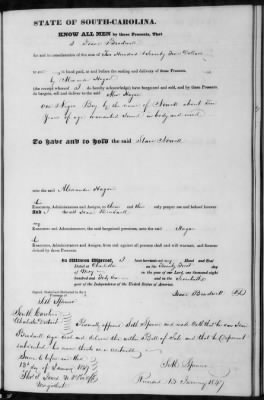 STATE OF SOUTH-CAROLINA.
KNOW ALL MEN by these Presents, That
I Isaac Bradwell
for and in consideration of the sum of Two Hundred & Seventy Five Dollars
to in hand paid, at and before the sealing and delivery of these Presents,
by Alexander Hagar
(the receipt whereof I do hereby acknowledge) have bargained and sold, and by these Presents
do bargain, sell and deliver to the said Alex Hagar
One Negro Boy by the name of about Ten
Years of age warranted Sound in body and mind
To have and to hold the said Slave
unto the said Alexander Hagar
his
Executors, Administrators and Assigns, to only proper use and behoof forever
And I the said Isaac Bradwell
my
Executors, Administrators, the said bargained premises, unto the said Hagar
his
Executors, Administrators and Assigns, from and against all persons shall and will warrant, and forever
defend by these Presents.
In Witness Whereof, I have hereunto set my Hand and Seal
Dated at Charleston on the Twenty first day
of May in the year of our Lord, one thousand eight
hundred and Forty and in the
year of the Independence of the United States of America.
Signed, Sealed and Delivered in the Presence of
Seth Spencer
Isaac Bradwell
South Carolina
Charleston District
Personally appeared Seth Spencer and made Oath that he saw Isaac
Bradwell sign seal and deliver the within Bill of Sale and that he Deponent
subscribed his name thereto as a witness
Sworn to before me this
13th day of January 1847
Seth Spencer
Magistrate
Recorded 13 January 1847